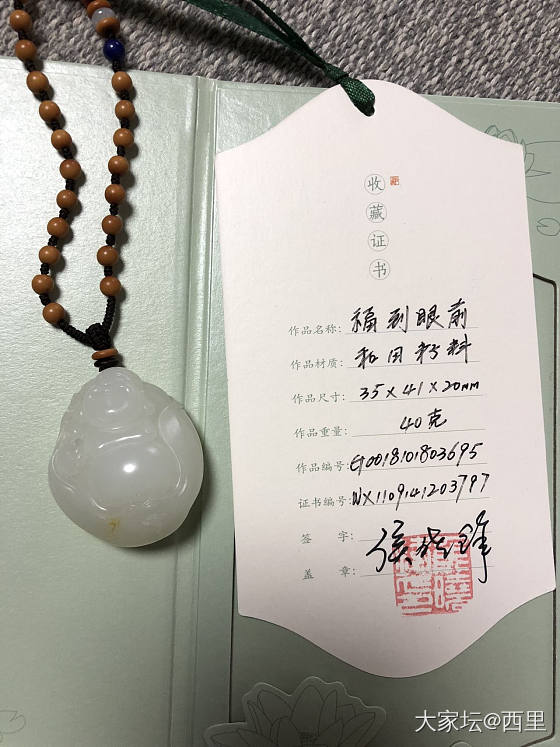 收藏证书
作品名称：福到眼前
作品材质：和田籽料
作品尺寸：35×41×20mm
作品重量：40克
作品编号：G0018101803695
证书编号：WX1109141203797
签 字：侯晓锋
盖 章：
大家坛@西里